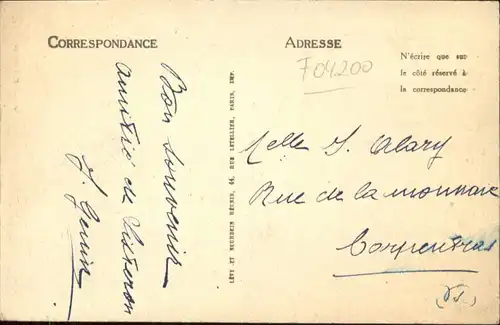 CORRESPONDANCE
ADRESSE
N'écrire que sur
le côté réservé à
la correspondance
F04200
Bon souvenir
amitié de Sisteron
J. Genin
LÉVY ET NEURDEIN RÉUNIS, 44, RUE LETELLIER, PARIS, IMP.
Melle J. Alary
Rue de la monnaie
Carpentras